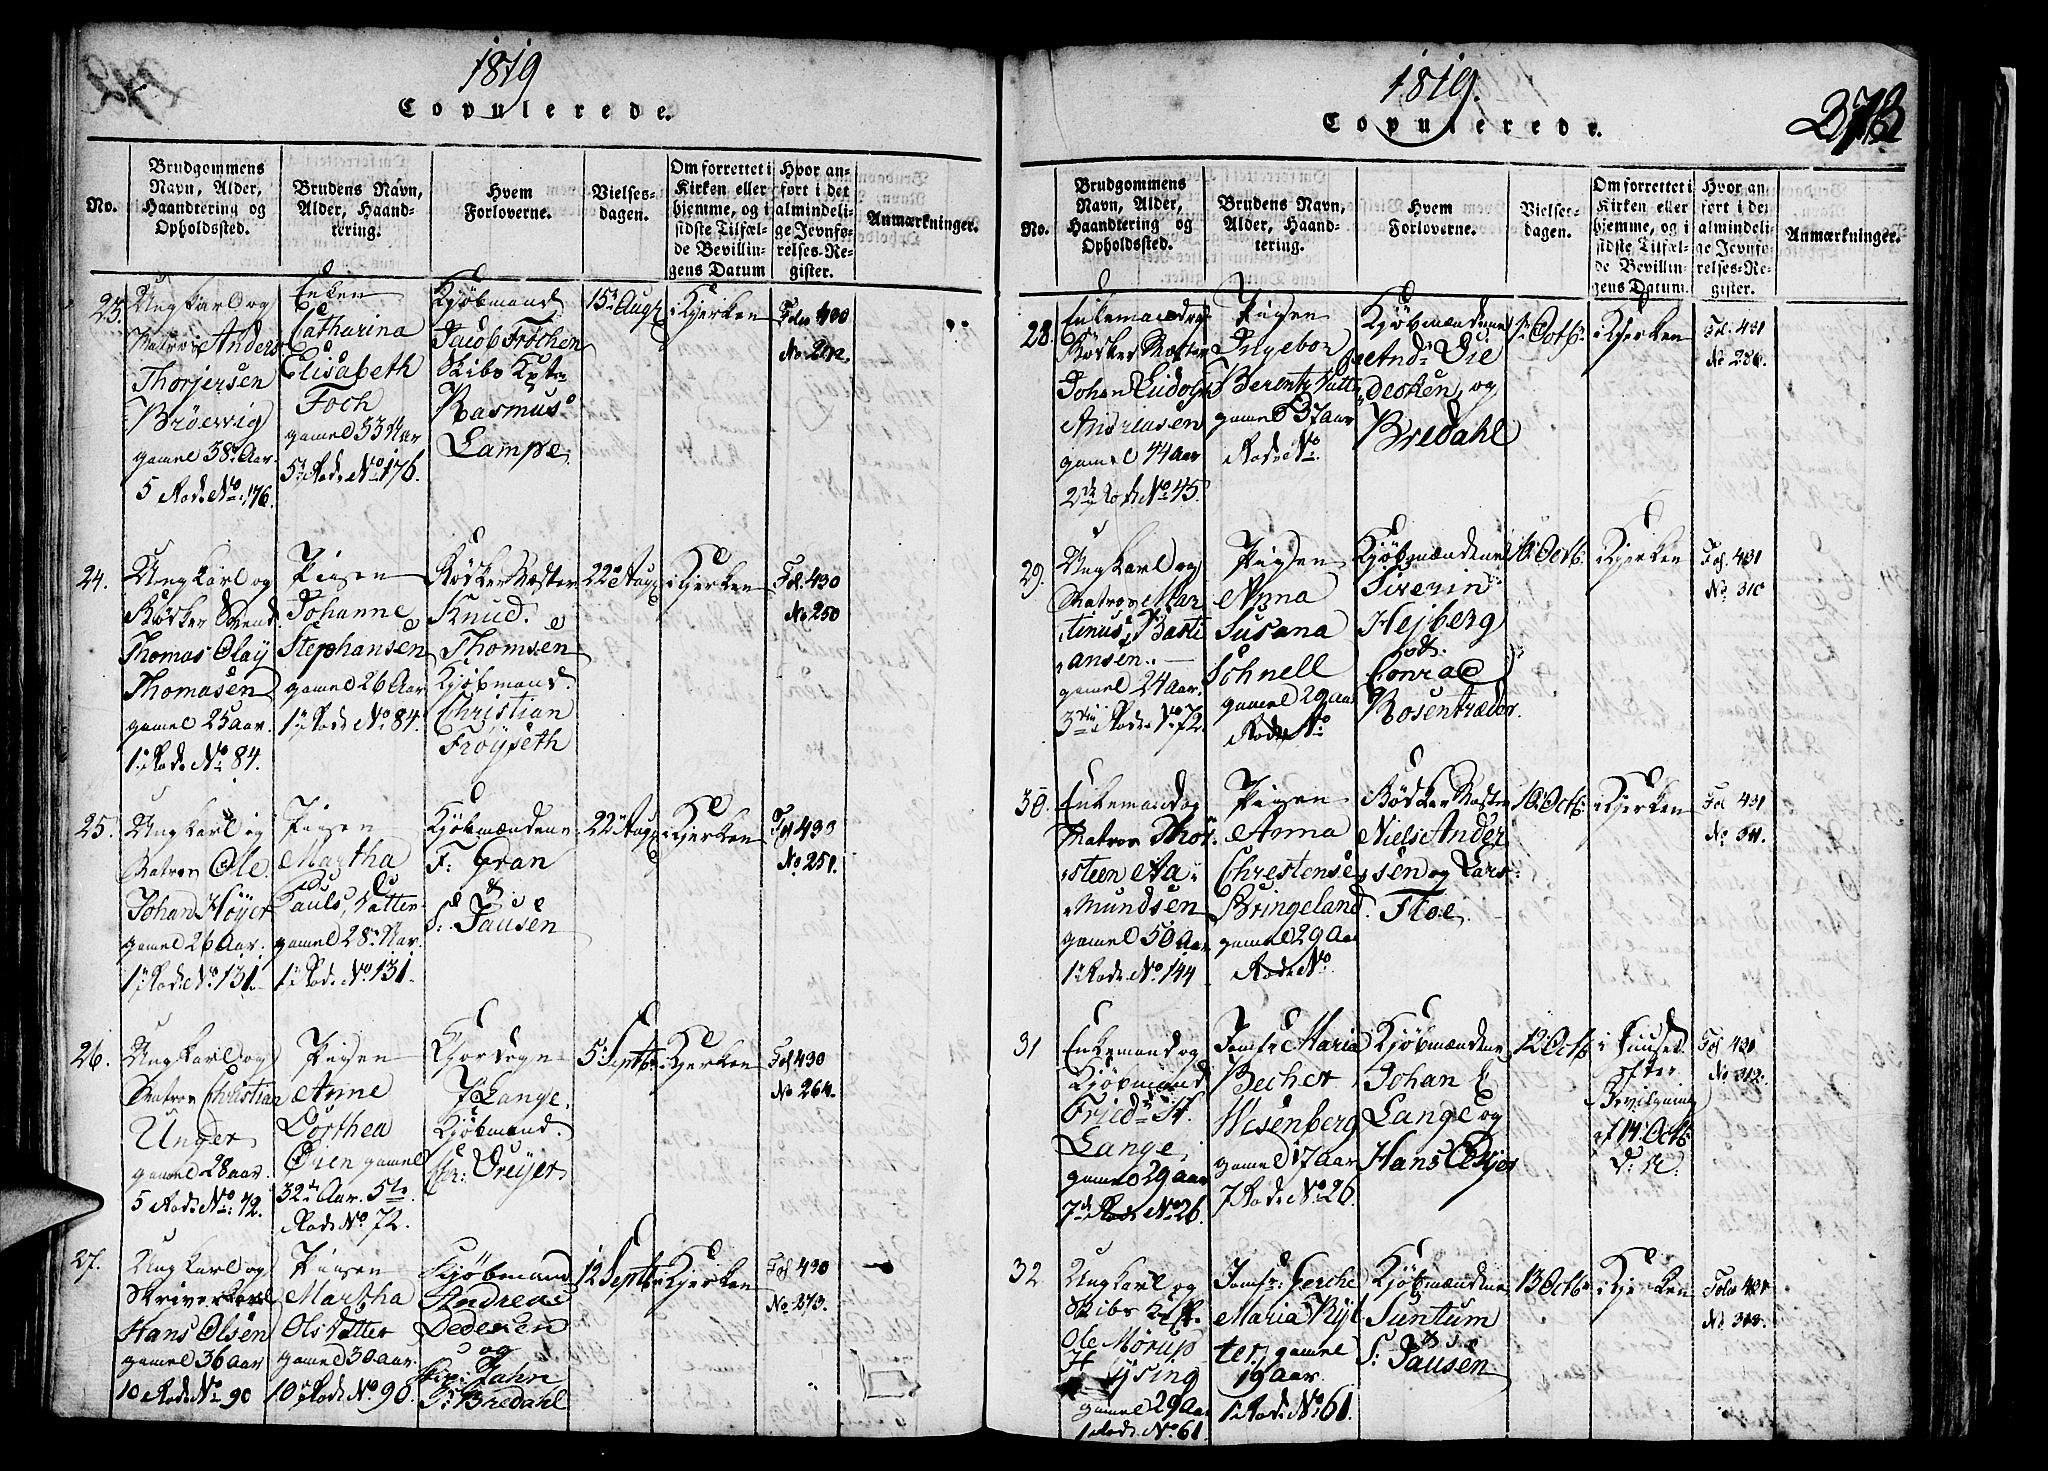 1819
Copulerede.
No.
Brudgommens
Navn, Alder,
Haandtering og
Opholdssted.
Brudens Navn,
Alder, Haand-
tering.
Hvem
Forloverne.
Vielses-
dagen.
Om forrettet i
Kirken eller
hjemme, og i
sidste Tilfæl-
de Bevillin-
gens Datum
Hvor an-
ført i det
almindeli-
ge Jevnfø-
relses-Re-
gister.
Anmærkninger.
23.
Ungkarl og
Matros Anders
Thorjersen
Brøevig
gamel 38 Aar
5 Rode No 176.
Enken
Catharina
Elisabeth
Foch
gamel 53 Aar
5 Rode No 176.
Kjøbmand
Jacob Trochen
Skibs Kptn
Rasmus
Lampe.
15 Augs
i Kjerken
Folio 430
No 242.
24.
Ungkarl og
Bødker Svend
Thomas Olay
Thomasen
gamel 25 aar
1 Rode No 84.
Pigen
Johanne
Stephansen
gamel 26 Aar
1 Rode No 84.
Bødker Mester
Knud
Thomsen
Kjøbmand
Christian
Frøyseth
22 Aug
i Kjerken
Fol. 430
No 250
25.
Ungkarl og
Matros Ole
Johan Høyer
gamel 26 Aar.
1 Rode No 131.
Pigen
Martha
Pauls Datter
gamel 28 Aar.
1 Rode No 131.
Kjøbmændene
F: Gran
&
S: Pausen
22 Aug
i Kjerken
Fol 430
No 251.
26.
Ungkarl og
Matros Christian
Unger
gamel 28 aar.
5 Rode No: 72.
Pigen
Anne
Dorthea
Øien gamel
32 Aar. 5te
Rode No 72.
Kjordegn
Lange.
Kjøbmand
Chr: Dreyer
5 Septbr
i Kjerken
Fol 430
No 264.
27.
Ungkarl og
Skriverkarl
Hans Olsen
gamel 36 aar
10 Rode No 90
Pigen
Martha
Ols Datter
gamel 30 aar.
10 Rode No 90
Kjøbmand
Andreas
Dedeken
og
Jahn
Bredahl
12 Septbr
i Kjerken
Fol 430
No 273.
1819.
Copulerede.
373
No.
Brudgommens
Navn, Alder,
Haandtering og
Opholdssted.
Brudens Navn,
Alder, Haand-
tering.
Hvem
Forloverne.
Vielses-
dagen.
Om forrettet i
Kirken eller
hjemme, og i
sidste Tilfæl-
de Bevillin-
gens Datum.
Hvor an-
ført i det
almindeli-
ge Jevnfø-
relses-Re-
gister.
Anmærkninger.
28.
Enkemand og
Bødker Mester
Johan Ludolph
Andriesen
gamel 44 aar
2 Rode No 45.
Pigen
Ingebor
Berentz Datter
gamel 37 aar
Rode No.
Kjøbmændene
And: Die
decken og
Bredahl
1 Octb.
i Kjerken
Fol. 431
No 286.
29.
Ungkarl og
Matros Mar
tinus Basti
ansen.
gamel 24 aar.
3 Rode No 72.
Pigen
Anna
Susana
Schnell
gamel 29 aar
Rode No
Kjøbmændene
Siverin
Hejberg
og
Conrad
Rosentræder.
10 Octb.
i Kjerken
Fol. 431
No 310
30.
Enkemand og
Matros Thor
steen Aa
mundsen
gamel 50 Aar
1 Rode No 144
Pigen
Anna
Christense
Bringeland.
gamel 29 Aa
Rode No
Bødker Mester
Niels Ander
sen og Lars
Floe.
10 Octb:
i Kjerken
Fol 431
No 311.
31
Enkemand og
Kjøbmand
Fried: H.
Lange
gamel 29 aar
7de Rode No 26.
Jomfr Maria
Becher
Wesenberg
gamel 17 aar
7 Rode No 26.
Kjøbmændene
Johan E
Lange og
Hans
12 Octb
i Huuset
efter
Bevilgning
af 14 Octb
d: A.
Fol 431
No 312.
32
Ungkarl og
Skibs Capt.
Ole Mørup
Hysing
gamel 29 Aar
1 Rode No 61.
Jomfr: Gerche
Maria Ryt
ter, gamel
19 aar.
1 Rode No 61.
Kjøbmændene
Suntum
&
S: Pausen
13 Octb
i Kjerken
Folio 431
No 313.